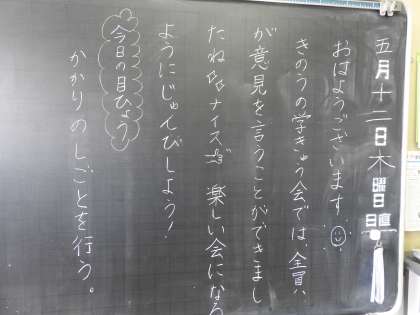 五月十二日木曜日
日直
おはようございます。
きのうの学きゅう会では、全員
が意見を言うことができまし
たね ナイス 楽しい会になる
ようにじゅんびしよう!
今日の目ひょう
かかりのしごとを行う。